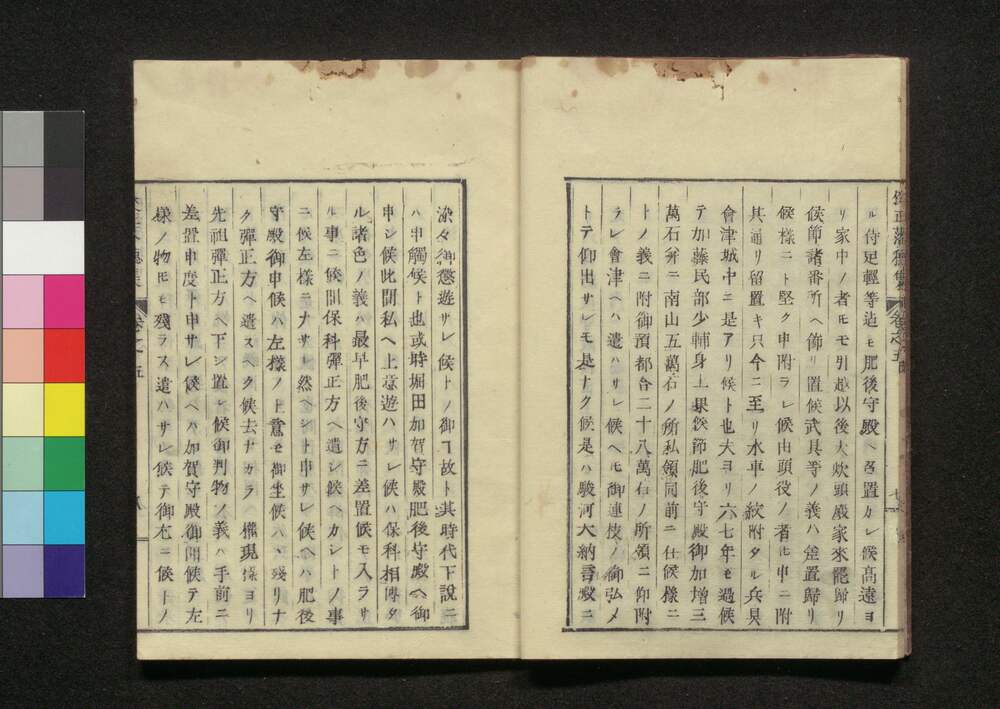 ル侍足輕等迄モ肥後守殿ヘ召置カレ候高遠ヨ
リ家中ノ者𪜈モ引越以後大炊頭殿家來罷歸リ
候節諸番所ヘ飾リ置候武具等ノ義ハ差置歸リ
候樣ニト堅ク申附ラレ候由頭役ノ者𪜈申ニ附
其通リ留置キ只今ニ至リ水車ノ紋附タル兵具
會津城中ニ是アリ候ト也夫ヨリ六七年モ過候
テ加藤民部少輔身上果候節肥後守殿御加增三
萬石并ニ南山五萬石ノ所私領同前ニ仕候樣ニ
トノ義ニ附御預都合二十八萬石ノ所領ニ仰附
ラレ會津ヘハ遣ハサレ候ヘ𪜈御連枝ノ御弘メ
トテ仰出サレモ是ナク候是ハ駿河大納言殿ニ
深々御懲遊サレ候トノ御ヿ故ト其時代下說ニ
ハ申觸候ト也或時堀田加賀守殿肥後守殿ヘ御
申シ候此間私ヘ上意遊ハサレ候ハ保科相傳タ
ル諸色ノ義ハ最早肥後守方ニ差置候モ入ラサ
ル事ニ候間保科彈正方ヘ遣シ候ヘカシトノ事
ニ候左樣ニナサレ然ヘシト申サレ候ヘハ肥後
守殿御申候ハ左樣ノ上意モ御坐候ハヽ殘リナ
ク彈正方ヘ遣スヘク候去ナカラ權現樣ヨリ
先祖彈正方ヘ下シ置レ候御判物ノ義ハ手前ニ
差置申度ト申サレ候ヘハ加賀守殿御聞候テ左
樣ノ物𪜈モ殘ラス遣ハサレ候テ御尤ニ候トノ
卷之五